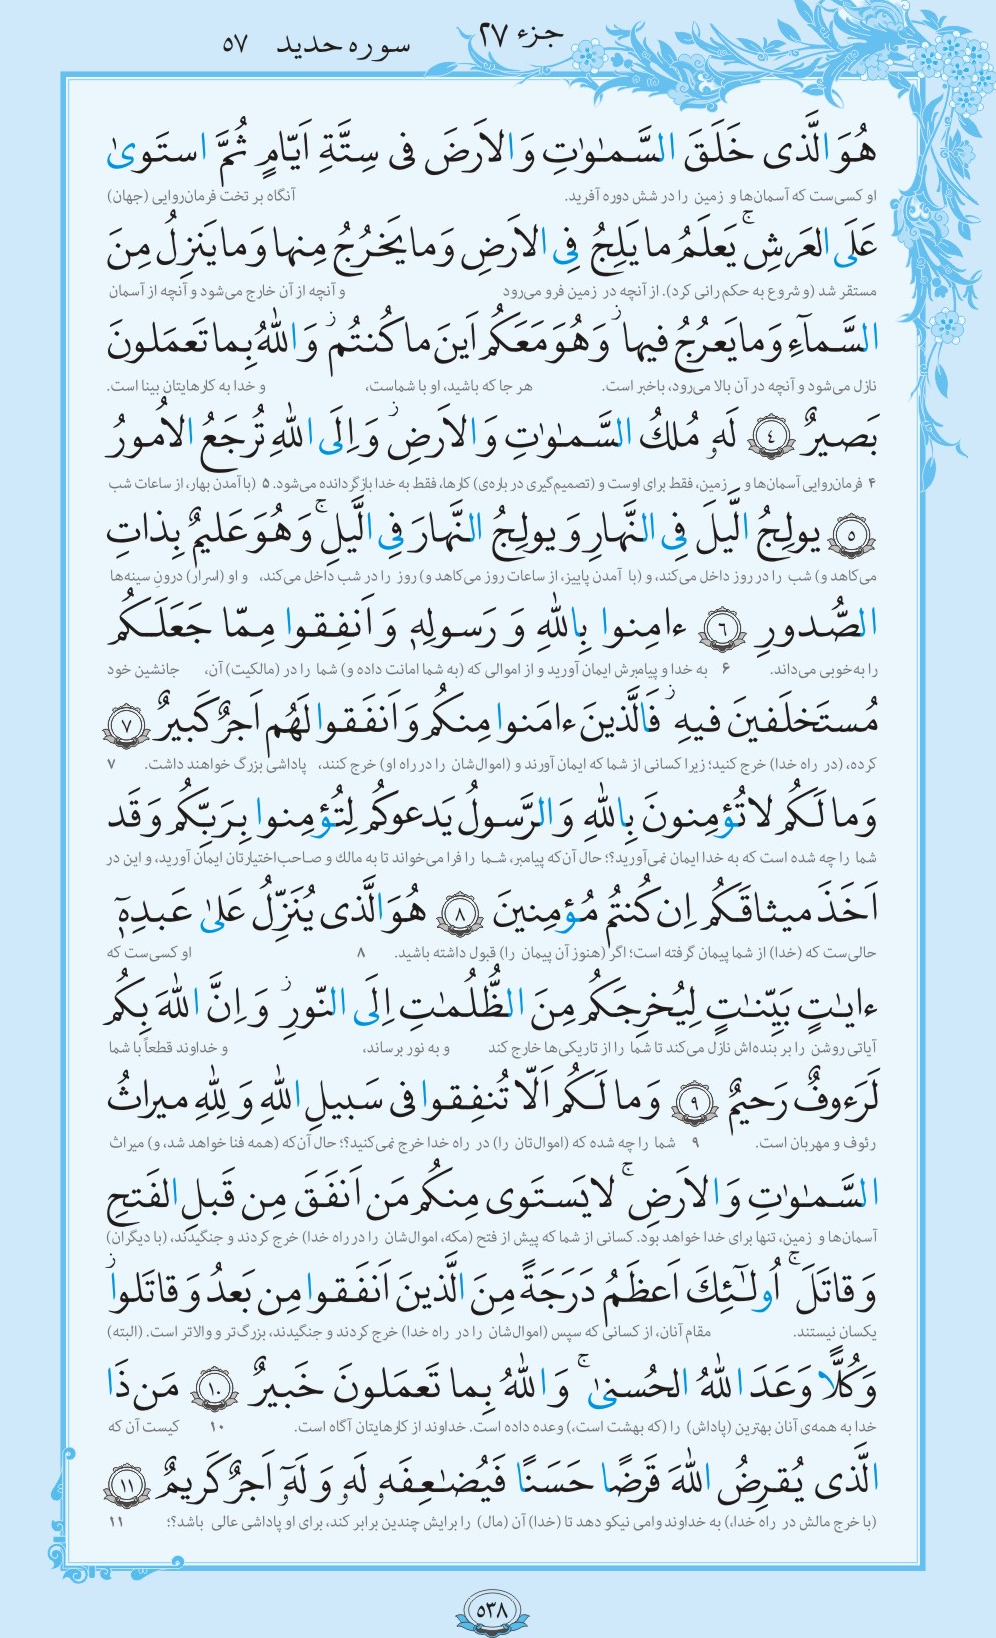 جزء ۲۷
سوره حدید ۵۷
هُوَ الَّذى خَلَقَ السَّمـٰوٰتِ وَ الاَرضَ فى سِتَّةِ اَیّامٍ ثُمَّ استَوىٰ
او کسی‌ست که آسمان‌ها و زمین را در شش دوره آفرید. آنگاه بر تخت فرمان‌روایی (جهان)
عَلَى العَرشِ ۚ یَعلَمُ ما یَلِجُ فِى الاَرضِ وَ ما یَخرُجُ مِنها وَ ما یَنزِلُ مِنَ
مستقر شد (و شروع به حکم‌رانی کرد). از آنچه در زمین فرو می‌رود و آنچه از آن خارج می‌شود و آنچه از آسمان
السَّمآءِ وَ ما یَعرُجُ فیها ز وَ هُوَ مَعَکُم اَینَ ما کُنتُم ز وَ اللهُ بِما تَعمَلونَ
نازل می‌شود و آنچه در آن بالا می‌رود، باخبر است. هر جا که باشید، او با شماست، و خدا به کارهایتان بینا است.
بَصیرٌ ٤ لَهۥ مُلكُ السَّمـٰوٰتِ وَ الاَرضِ ز وَ اِلَى اللهِ تُرجَعُ الاُمورُ
۴ فرمان‌روایی آسمان‌ها و زمین، فقط برای اوست و (تصمیم‌گیری در باره‌ی) کارها، فقط به خدا بازگردانده می‌شود. ۵ (با آمدن بهار، از ساعات شب
٥ یولِجُ الَّیلَ فِى النَّهارِ وَ یولِجُ النَّهارَ فِى الَّیلِ ۚ وَ هُوَ عَلیمٌ بِذاتِ
می‌کاهد و) شب را در روز داخل می‌کند، و (با آمدن پاییز، از ساعات روز می‌کاهد و) روز را در شب داخل می‌کند، و او (اسرار) درونِ سینه‌ها
الصُّدورِ ٦ ءامِنوا بِاللهِ وَ رَسولِهٖ وَ اَنفِقوا مِمّا جَعَلَـکُم
را به‌خوبی می‌داند. ۶ به خدا و پیامبرش ایمان آورید و از اموالی که (به شما امانت داده و) شما را در (مالکیت) آن، جانشین خود
مُستَخلَفینَ فیهِ ز فَالَّذینَ ءامَنوا مِنکُم وَ اَنفَقوا لَهُم اَجرٌ کَبیرٌ ٧
کرده، (در راه خدا) خرج کنید؛ زیرا کسانی از شما که ایمان آورند و (اموال‌شان را در راه او) خرج کنند، پاداشی بزرگ خواهند داشت. ۷
وَ ما لَکُم لا تُؤمِنونَ بِاللهِ وَ الرَّسولُ یَدعوکُم لِتُؤمِنوا بِرَبِّکُم وَ قَد
شما را چه شده است که به خدا ایمان نمی‌آورید؟! حال آن‌که پیامبر، شما را فرا می‌خواند تا به مالک و صاحب‌اختیارتان ایمان آورید، و این در
اَخَذَ میثاقَکُم اِن کُنتُم مُؤمِنینَ ٨ هُوَ الَّذى یُنَزِّلُ عَلىٰ عَبدِهٖٓ
حالی‌ست که (خدا) از شما پیمان گرفته است؛ اگر (هنوز آن پیمان را) قبول داشته باشید. ۸ او کسی‌ست که
ءایـٰتٍ بَیِّنـٰتٍ لِیُخرِجَکُم مِنَ الظُّلُمـٰتِ اِلَى النّورِ ز وَ اِنَّ اللهَ بِکُم
آیاتی روشن را بر بنده‌اش نازل می‌کند تا شما را از تاریکی‌ها خارج کند و به نور برساند، و خداوند قطعاً با شما
لَرَءوفٌ رَحیمٌ ٩ وَ ما لَکُم اَلّا تُنفِقوا فى سَبیلِ اللهِ وَ لِلّٰهِ میراثُ
رئوف و مهربان است. ۹ شما را چه شده که (اموال‌تان را) در راه خدا خرج نمی‌کنید؟! حال آن‌که (همه فنا خواهد شد، و) میراث
السَّمـٰوٰتِ وَ الاَرضِ ۚ لا یَستَوى مِنکُم مَن اَنفَقَ مِن قَبلِ الفَتحِ
آسمان‌ها و زمین، تنها برای خدا خواهد بود. کسانی از شما که پیش از فتح (مکه، اموال‌شان را در راه خدا) خرج کردند و جنگیدند، (با دیگران)
وَ قاتَلَ ۚ اُولـٰٓئِكَ اَعظَمُ دَرَجَةً مِنَ الَّذینَ اَنفَقوا مِن بَعدُ وَ قاتَلوا ز
یکسان نیستند. مقام آنان، از کسانی که سپس (اموال‌شان را در راه خدا) خرج کردند و جنگیدند، بزرگ‌تر و والاتر است. (البته)
وَ کُلًّا وَعَدَ اللهُ الحُسنىٰ ۚ وَ اللهُ بِما تَعمَلونَ خَبیرٌ ١٠ مَن ذَا
خدا به همه‌ی آنان بهترین (پاداش) را (که بهشت است،) وعده داده است. خداوند از کارهایتان آگاه است. ۱۰ کیست آن که
الَّذى یُقرِضُ اللهَ قَرضًا حَسَنًا فَیُضـٰعِفَهۥ لَهۥ وَ لَهۥٓ اَجرٌ کَریمٌ ١١
(با خرج مالش در راه خدا،) به خداوند وامی نیکو دهد تا (خدا) آن (مال) را برایش چندین برابر کند، برای او پاداشی عالی باشد؟! ۱۱
۵۳۸